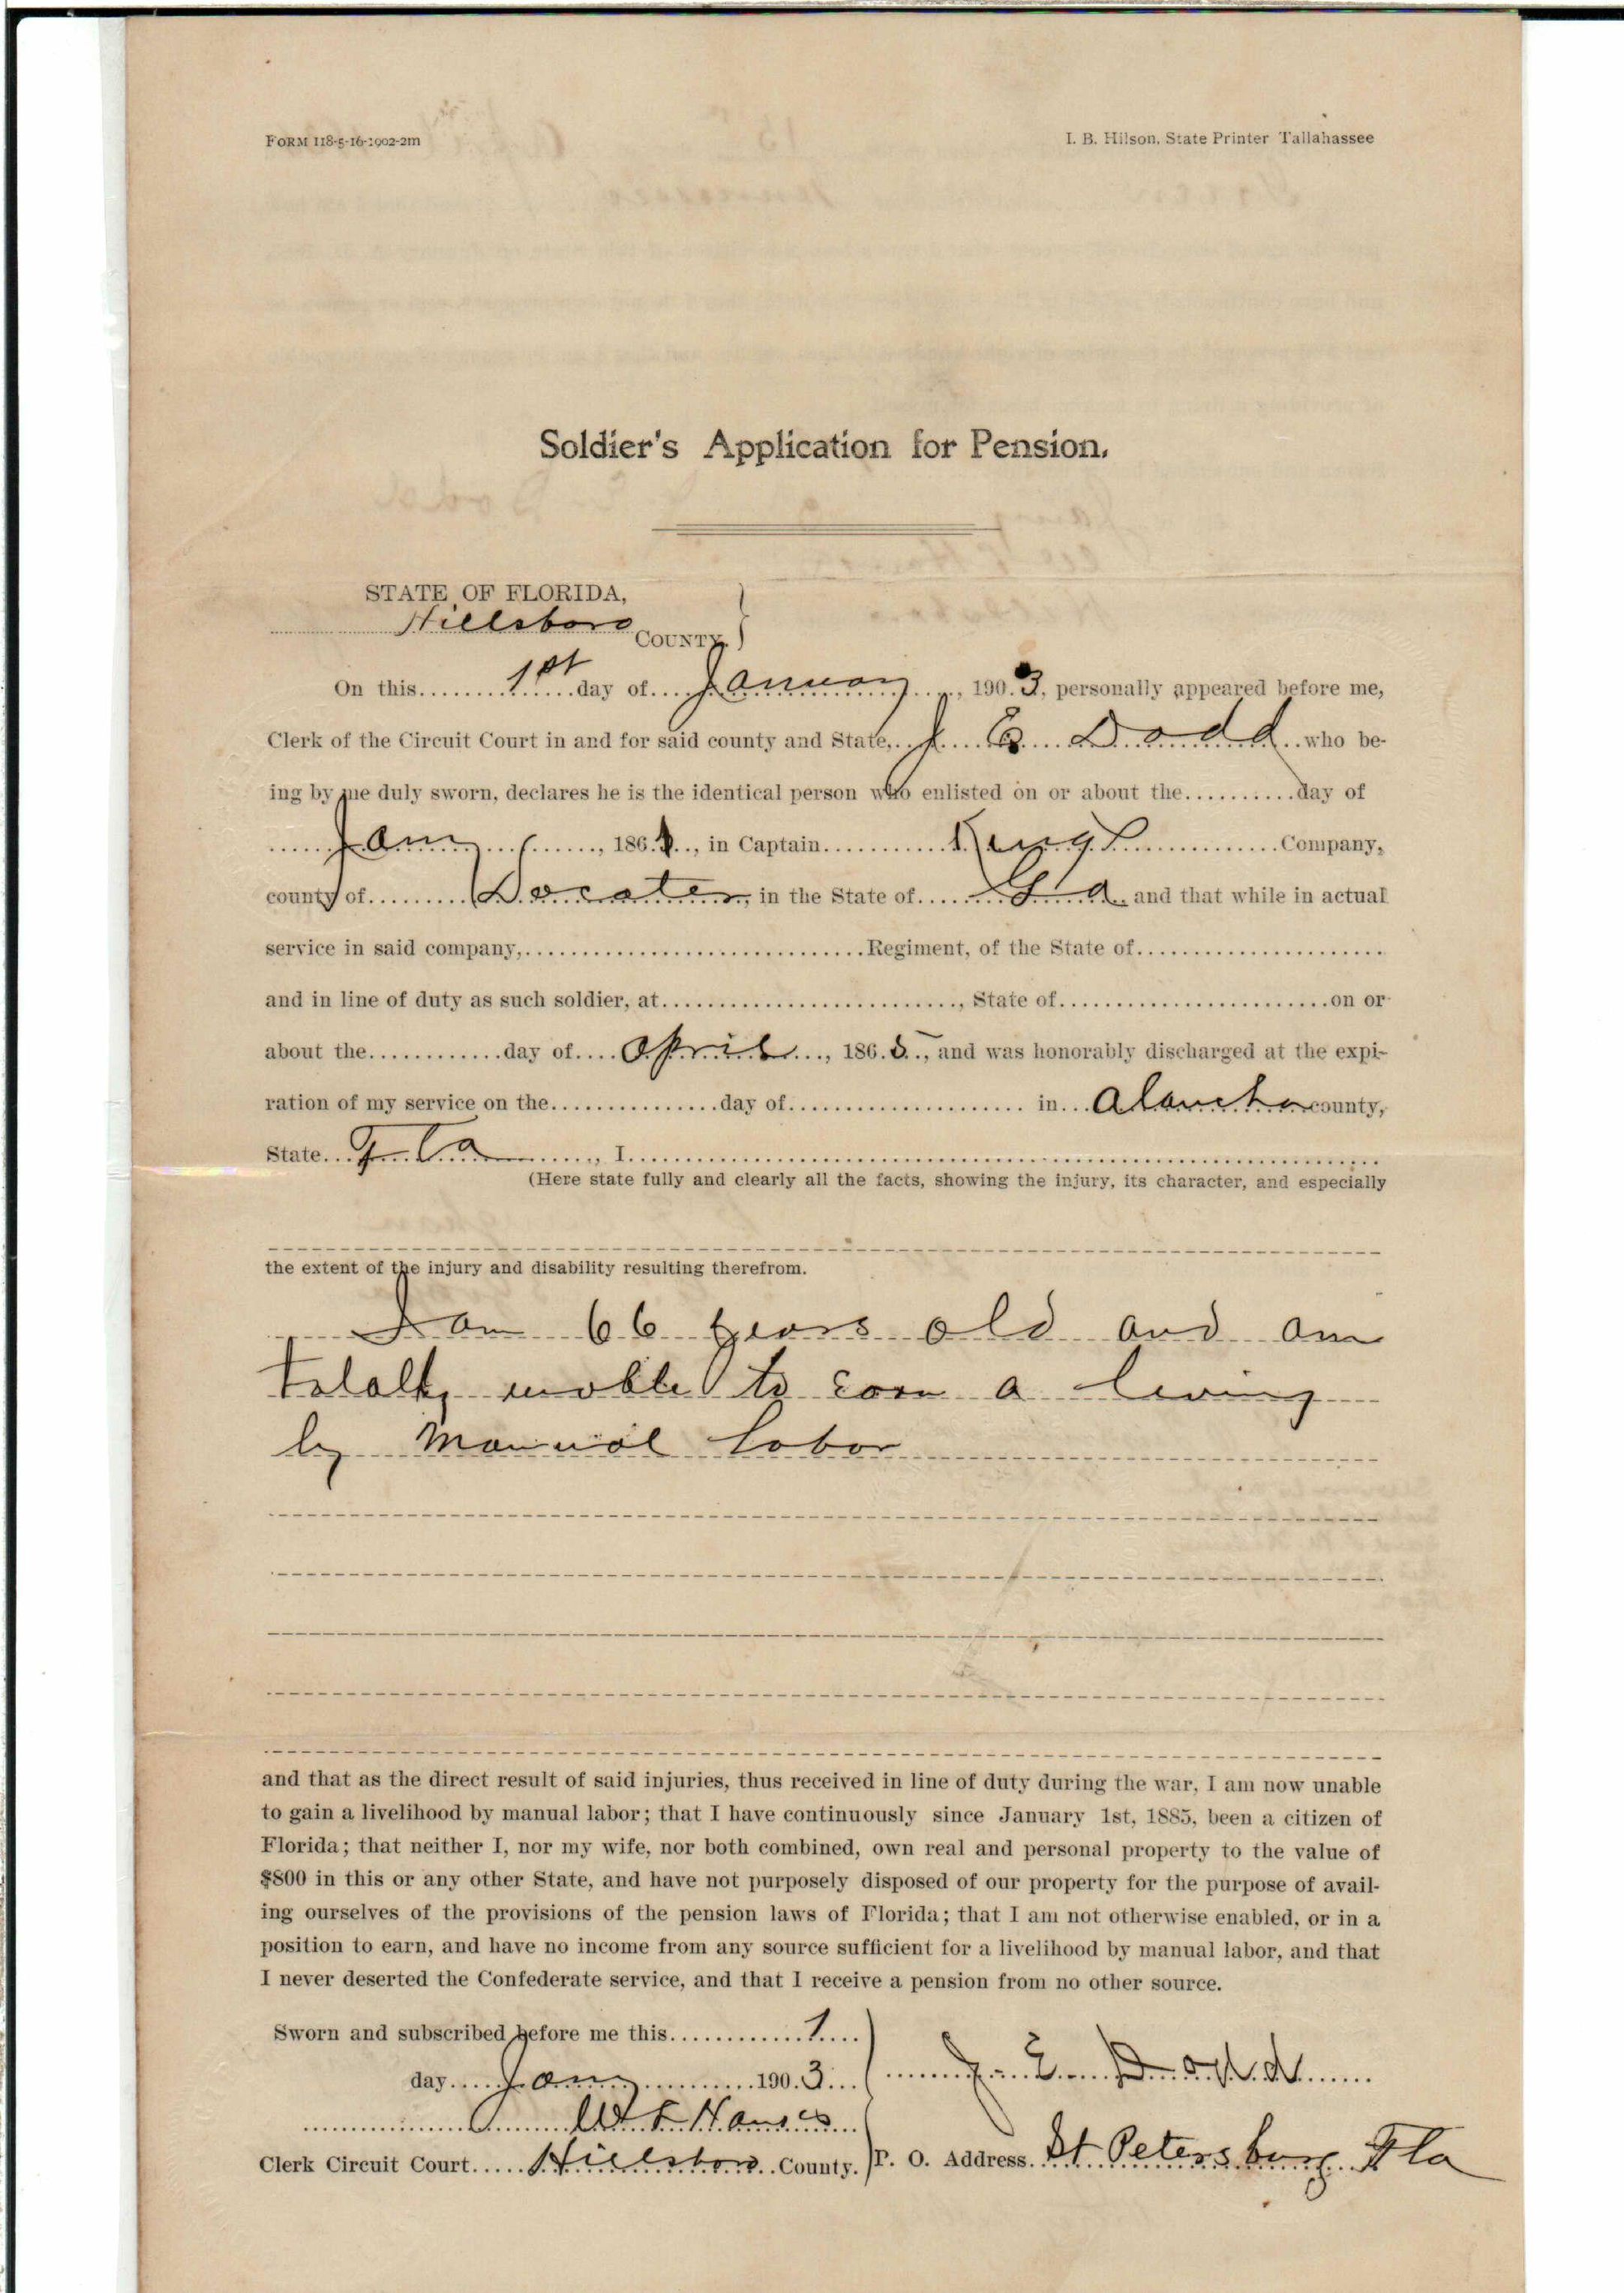 FORM 118-5-16-1902-2m
I. B. Hilson, State Printer Tallahassee
Soldier's Application for Pension.
STATE OF FLORIDA,
Hillsboro COUNTY.
On this 1st day of January, 1903, personally appeared before me,
Clerk of the Circuit Court in and for said county and State, J E Dodd who be-
ing by me duly sworn, declares he is the identical person who enlisted on or about the day of
Jany, 186, in Captain Kings Company,
county of Decater, in the State of Ga and that while in actual
service in said company, Regiment, of the State of
and in line of duty as such soldier, at, State of on or
about the day of April, 1865, and was honorably discharged at the expi-
ration of my service on the day of in county,
State Fla, I
(Here state fully and clearly all the facts, showing the injury, its character, and especially
the extent of the injury and disability resulting therefrom.
I am 66 years old and am
totally unable to earn a living
by Manual labor
and that as the direct result of said injuries, thus received in line of duty during the war, I am now unable
to gain a livelihood by manual labor; that I have continuously since January 1st, 1885, been a citizen of
Florida; that neither I, nor my wife, nor both combined, own real and personal property to the value of
$800 in this or any other State, and have not purposely disposed of our property for the purpose of avail-
ing ourselves of the provisions of the pension laws of Florida; that I am not otherwise enabled, or in a
position to earn, and have no income from any source sufficient for a livelihood by manual labor, and that
I never deserted the Confederate service, and that I receive a pension from no other source.
Sworn and subscribed before me this 1
day Jany 1903
J. E. Dodd
Clerk Circuit Court Hillsboro County.
P. O. Address St Petersburg Fla